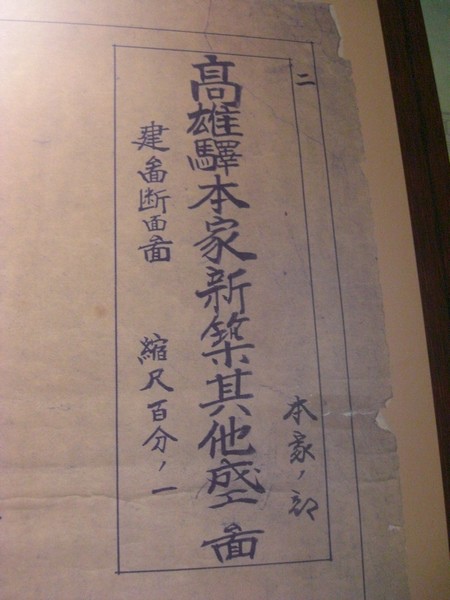 二
本家ノ部
高雄驛本家新築其他 圖
建圖断面圖 縮尺百分ノ一